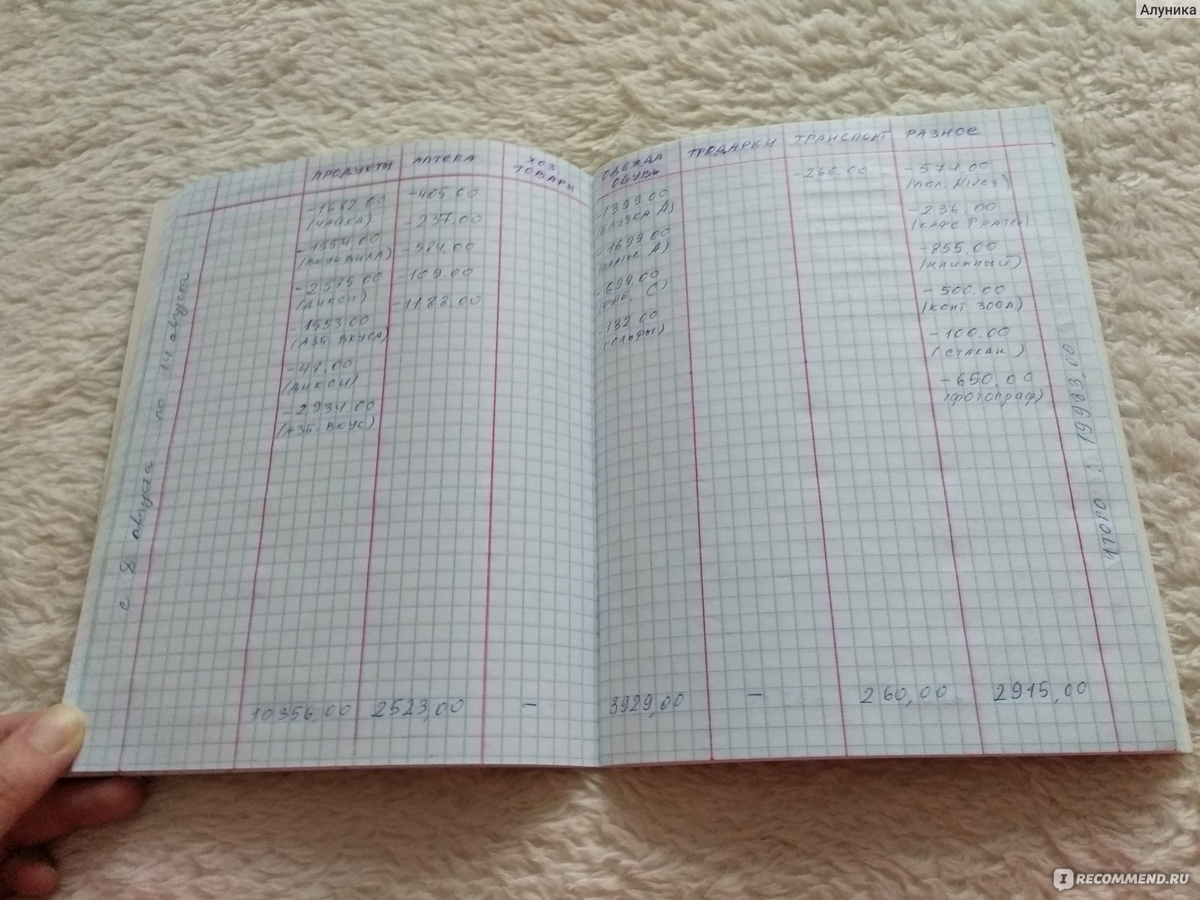 Алуника
с 8 августа по 14 августа
ПРОДУКТЫ
-1682.00
(ЧАЙКА)
-1554,00
(ВКУСВИЛЛ)
-2585.00
(ДИКСИ)
-1553.00
(АЗБ. ВКУСА)
-48.00
(ДИКСИ)
-2934.00
(АЗБ. ВКУС)
10356,00
АПТЕКА
-405,00
-237.00
-584.00
-109.00
-1188.00
2523,00
ХОЗ.
ТОВАРЫ
-
ОДЕЖДА
ОБУВЬ
-1399.00
БЛУЗКА А)
-1699.00
(ПЛАТЬЕ А)
-699.00
С)
-132.00
(ГОЛЬФЫ)
3929,00
ПОДАРКИ
-
ТРАНСПОРТ
-260.00
260,00
РАЗНОЕ
-574.00
(ПОЛ.
-236.00
(КАФЕ
-855.00
(КНИЖНЫЙ)
-500.00
(КОНТ. ЗООП)
-100.00
(СТАКАН)
-650,00
(ФОТОГРАФ)
2915,00
ИТОГО: 19983.00
IRECOMMEND.RU